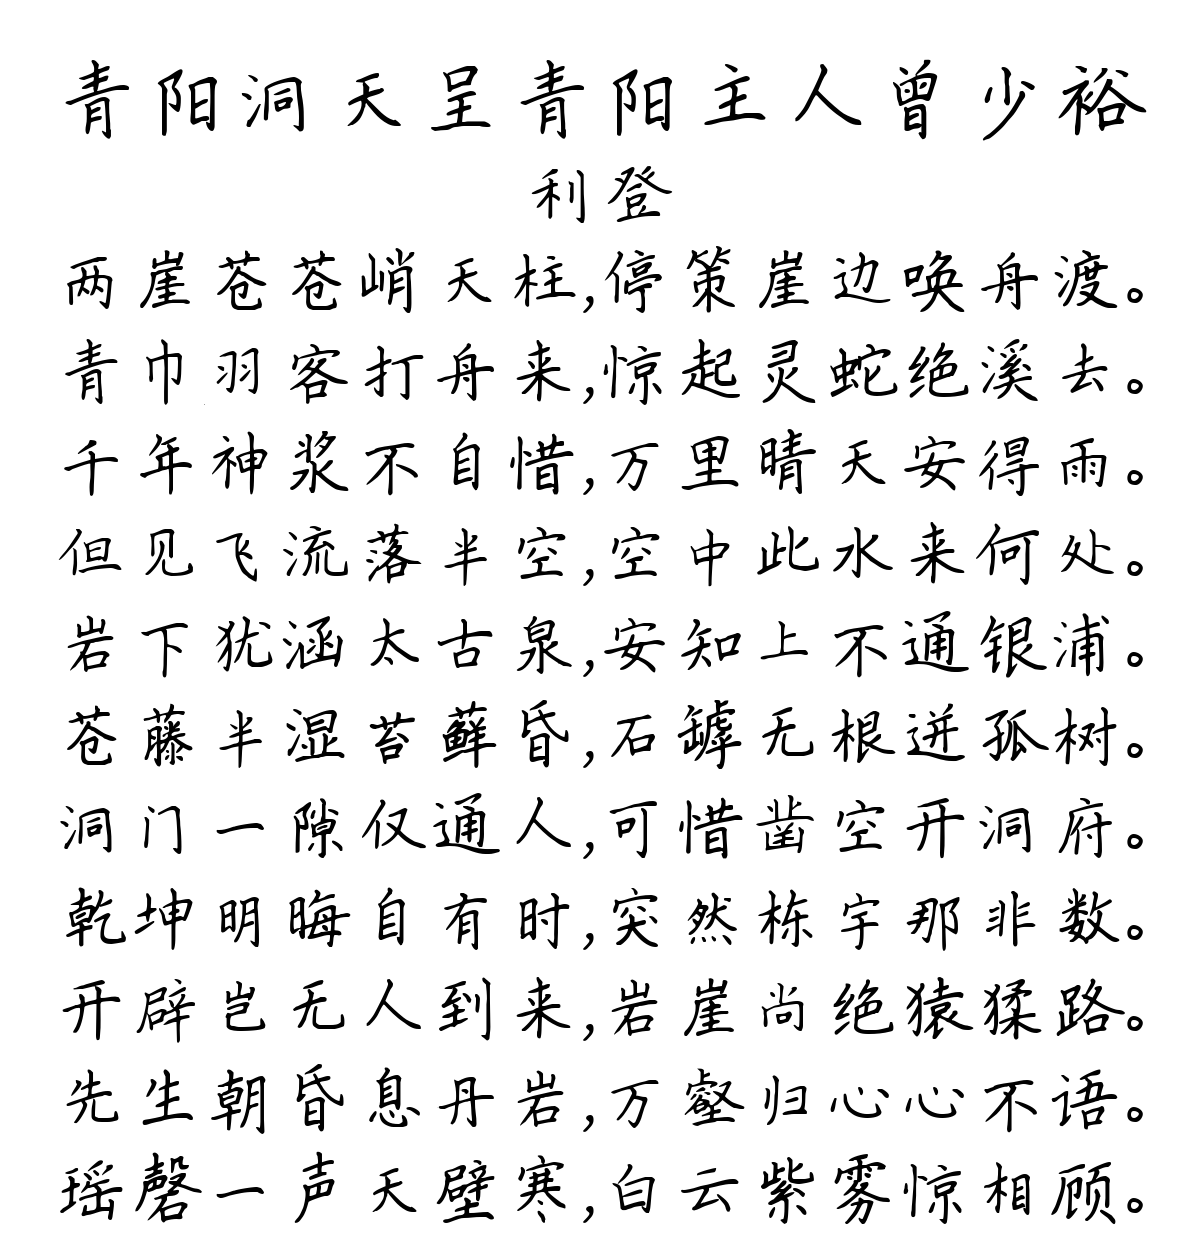 青阳洞天呈青阳主人曾少裕
利登
两崖苍苍峭天柱,停策崖边唤舟渡。
青巾羽客打舟来,惊起灵蛇绝溪去。
千年神浆不自惜,万里晴天安得雨。
但见飞流落半空,空中此水来何处。
岩下犹涵太古泉,安知上不通银浦。
苍藤半湿苔藓昏,石罅无根迸孤树。
洞门一隙仅通人,可惜凿空开洞府。
乾坤明晦自有时,突然栋宇那非数。
开辟岂无人到来,岩崖尚绝猿猱路。
先生朝昏息丹岩,万壑归心心不语。
瑶磬一声天壁寒,白云紫雾惊相顾。